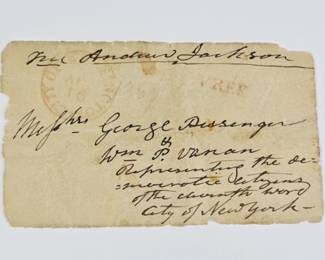 Free Andrew Jackson
FREE
Messhrs George Bessenger
Wm P. Vanan
Representing the de-
mocratic Citizens
of the eleventh word
City of New York—